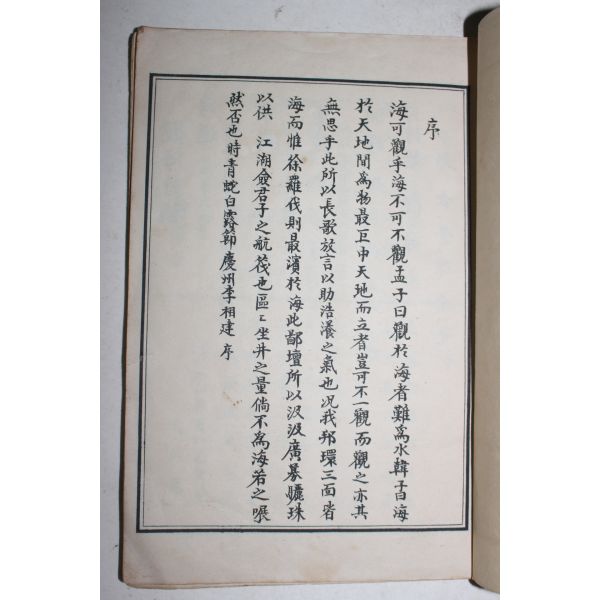 序
海可觀乎海不可不觀孟子曰觀於海者難爲水韓子曰海
於天地間爲物最巨中天地而立者豈可不一觀而觀之亦其
無思乎此所以長歌放言以助浩瀁之氣也况我邦環三面皆
海而惟徐羅伐則最濱於海此鄙壇所以汲汲廣募驪珠
以供 江湖僉君子之航筏也區〻坐井之量倘不爲海若之哂
然否也時青蛇白露節慶州李相建 序